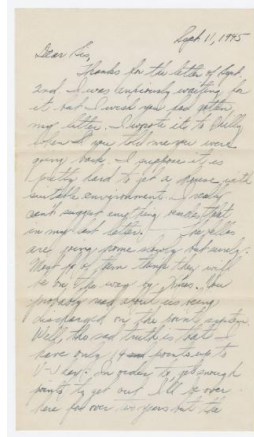 Sept 11, 1945
Dear Sis,
Thanks for the letter of Sept.
2nd. I was anxiously waiting for
it but I wish you had gotten
my letter. I wrote it to
when you told me you were
going back. I suppose it is
pretty hard to get a house with
suitable environment. I really
cant suggest anything more than
in my last letter. The fellas
are going home slowly but surely.
Most of them think they will
be on the way by Xmas. You
probably read about us being
discharged on the point system.
Well, the sad truth is that I
have only points up to
V-J day. In order to get enough
points to get out I'll be over
here for over but the